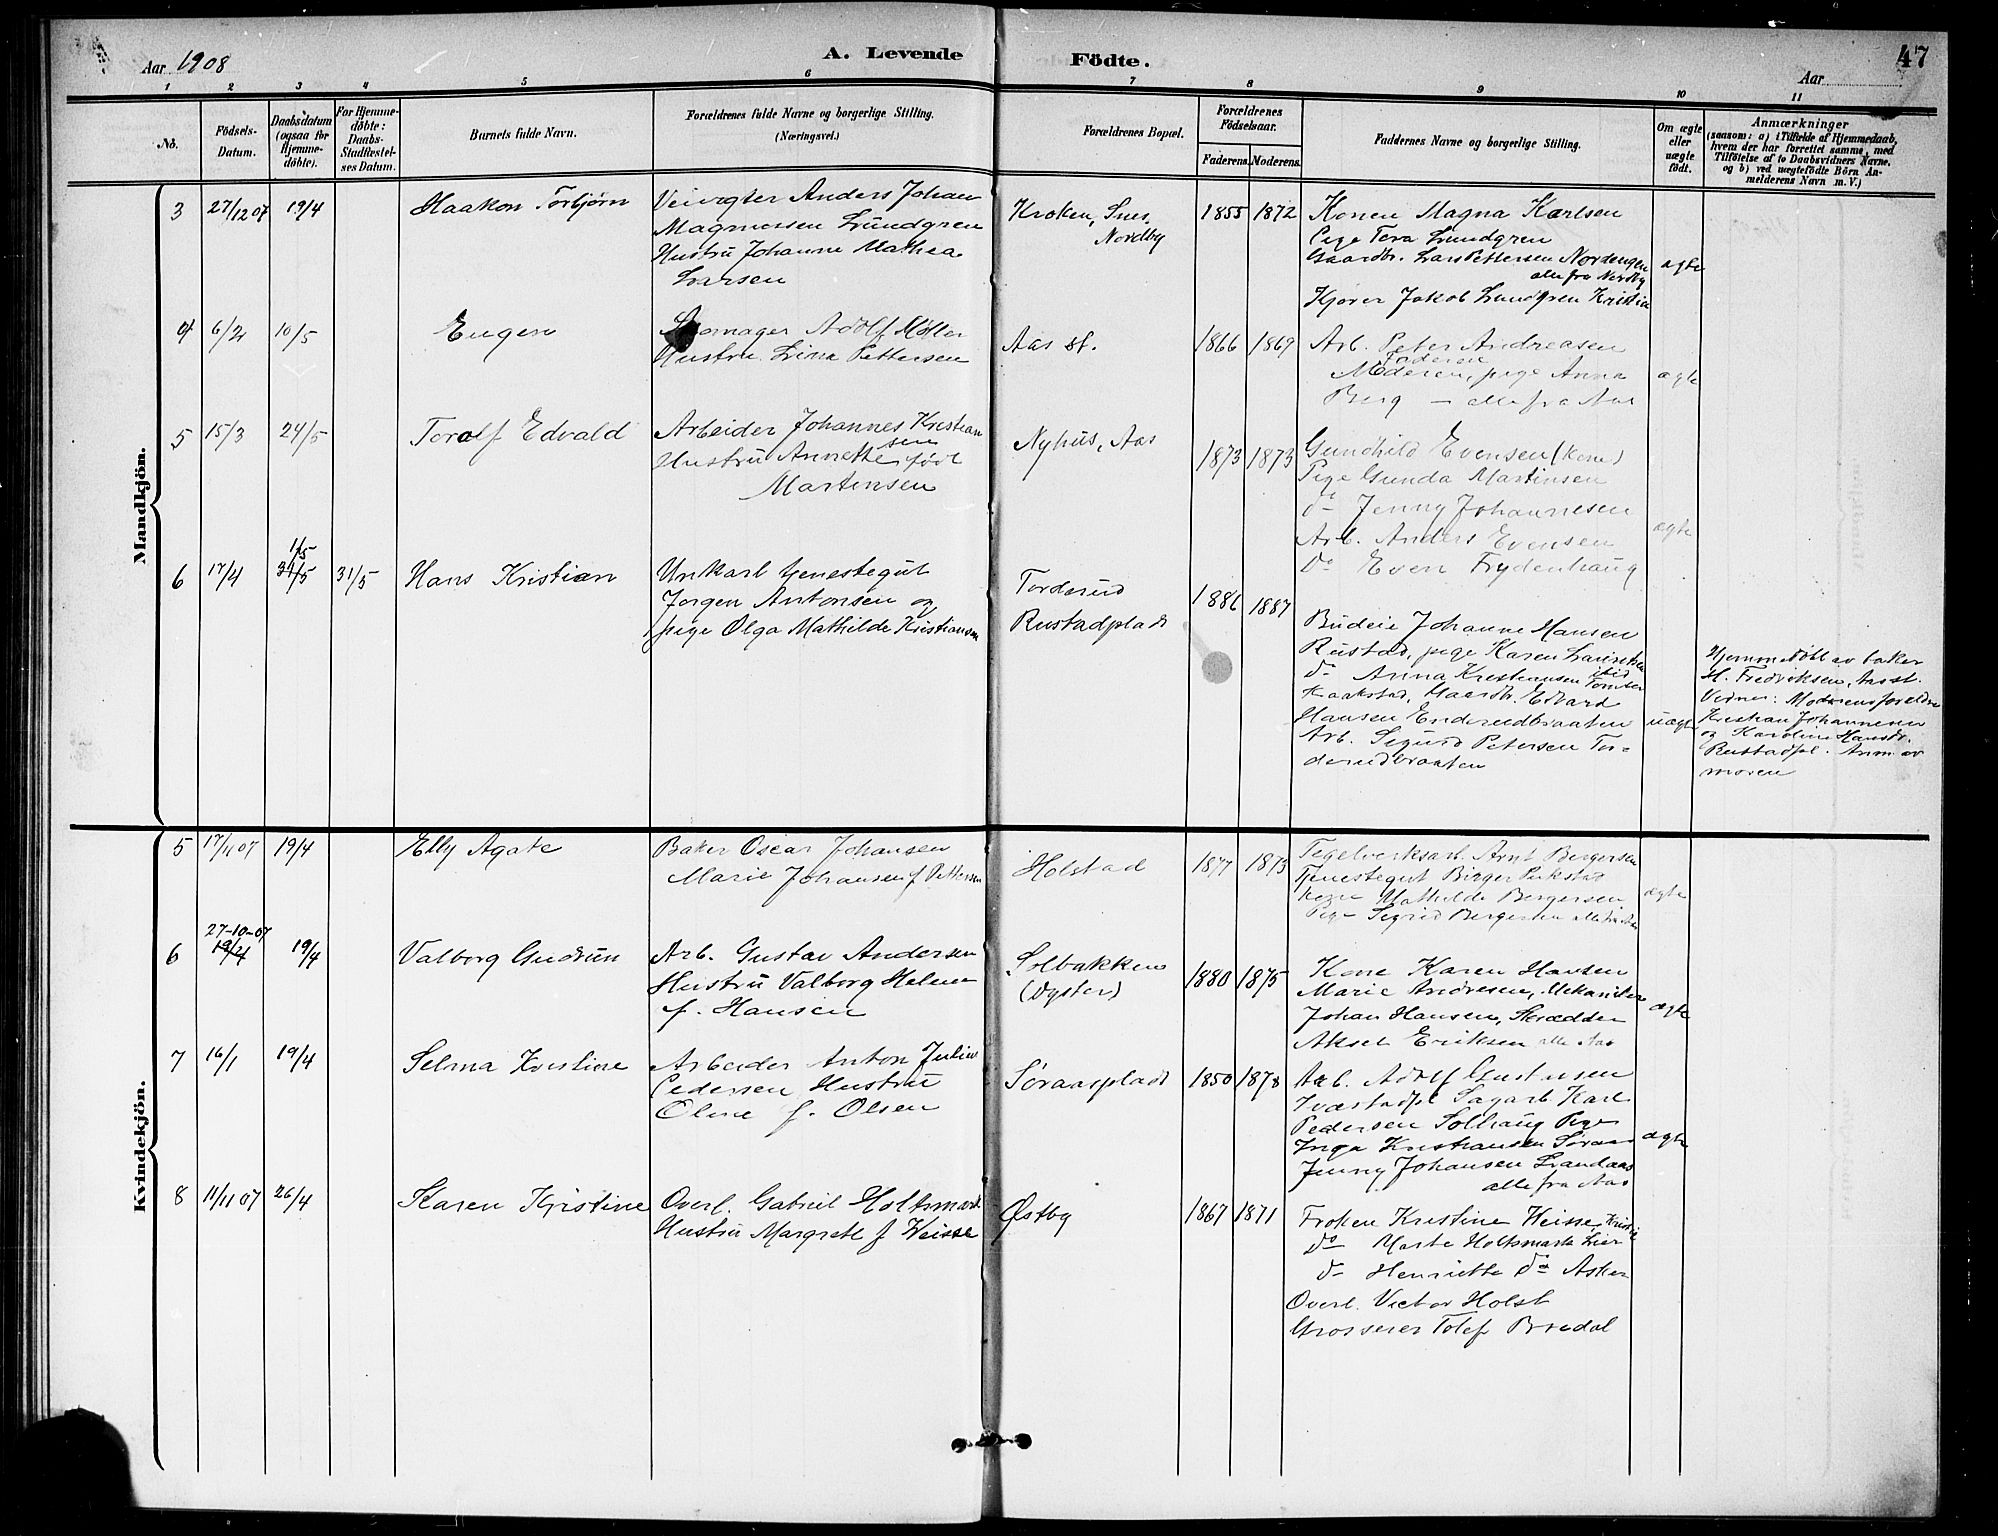 Aar 1908
A. Levende
Födte.
Aar
47
1 2 3 4 5 6 7 8 9 10 11
No.
Födsels-
Datum.
Daabsdatum
(ogsaa for
Hjemme-
döbte).
For Hjemme-
döbte:
Daabs-
Stadfæstel-
ses Datum.
Barnets fulde Navn.
Forældrenes fulde Navne og borgerlige Stilling.
(Næringsvei.)
Forældrenes Bopæl.
Forældrenes
Födselsaar.
Faderens. Moderens.
Faddernes Navne og borgerlige Stilling.
Om ægte
eller
uægte
födt.
Anmærkninger
(saasom: a) i Tilfælde af Hjemmedaab,
hvem der har forrettet samme, med
Tilföielse af to Daabsvidners Navne.
og b) ved uægtefödte Börn An-
melderens Navn m. V.)
Mandkjön.
3 27/12 07 19/4 Haakon Torbjørn
Veivogter Anders Johan
Magnussen Lundgren
Hustru Johanne Mathea
Larsen
Kroken, Snes,
Nordby
1855 1872
Konen Magna Karlsen
Pige Tora Lundgren
Gaardbr. Lars Pettersen Nordengen
alle fra Nordby
Kjører Jakob Lundgren Kristia
ægte
4 6/2 10/5 Eugen
Skomager Adolf Møller
Hustru Lina Pettersen
Aas st.
1866 1869
Arb. Peter Andreasen
Faderen
Moderen, pige Anna
Berg — alle fra Aas
ægte
5 15/3 24/5 Toralf Edvald
Arbeider Johannes Kristian
sen
Hustru Annette født
Martinsen
Nyhus, Aas
1873 1873
Gundhild Evensen (kone)
Pige Gunda Martinsen
do Jenny Johannesen
Arb. Anders Evensen
Do Even Frydenhaug
ægte
6 17/4 1/5 31/5 31/5 Hans Kristian
Unkarl tjenestegut
Jørgen Antonsen og
pige Olga Mathilde Kristiansen
Torderud
Rustadplads
1886 1887
Budeie Johanne Hansen
Rustad, pige Karen Lauritsen
ibid
do Anna Kristiansen
Kaakstad, Gaardbr. Edvard
Hansen Enderudbraaten
Arb. Sigurd Petersen Tor-
derudbraaten
uægte
Hjemmedøbt av baker
H. Fredriksen, Aas st.
Vidner: Moderens foreldre
Kristian Johannesen
og Karoline Hansdr.
Rustadpl. Anm. av
moren
Kvindekjön.
5 17/11 07 19/4 Elly Agate
Baker Oscar Johansen
Marie Johansen f Pettersen
Holstad
1877 1873
Tegelverksarb. Arnt Bergersen
Tjenestegut Birger
Kone Mathilde Bergersen
Pige Sigrid Bergersen alle fra Aas
ægte
6 27-10-07 19/4 19/4 Valborg Gudrun
Arb. Gustav Andersen
Hustru Valborg Helene
f. Hansen
Solbakken
(Dyster)
1880 1875
Kone Karen Hansen
Marie Andresen, Mekaniker
Johan Hansen, Skrædder
Aksel Eriksen alle Aas
ægte
7 16/1 19/4 Selma Kristine
Arbeider Anton Julius
Pedersen Hustru
Oline f. Olsen
Søraasplads
1850 1878
Arb. Adolf Gustavsen
Tvæstadpl Sagarb. Karl
Pedersen Solhaug Pige
Inga Kristiansen Søraas
Jenny Johansen Landaas
alle fra Aas
ægte
8 11/11 07 26/4 Karen Kristine
Overl. Gabriel Holtsmark
Hustru Margrete f Weisse
Østby
1867 1871
Frøken Kristine Weisse, Kristia
Do Marte Holtsmark Lier
do Henriette do Asker
Overl. Victor Holst
Grosserer Tolef Bredal